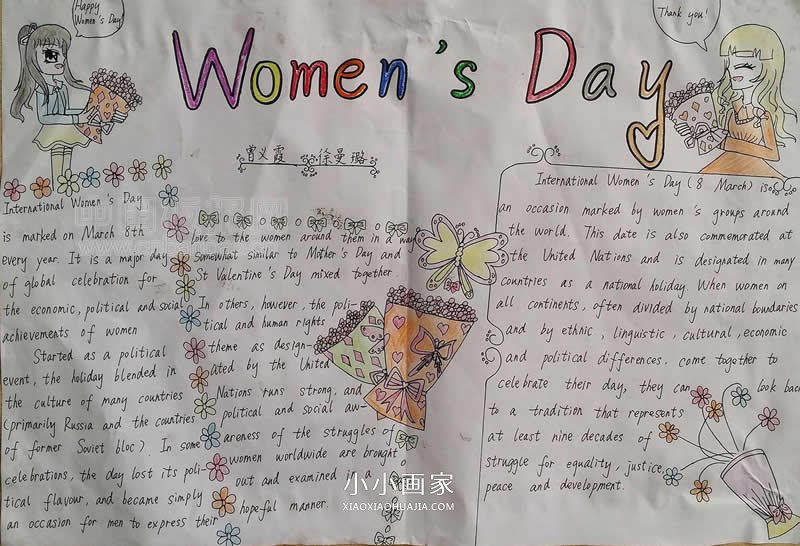 Happy
Women's Day
Thank you!
Women's Day
曾义霞 徐曼璐
International Women's Day
is marked on March 8th
every year. It is a major day
of global celebration for
the economic, political and social
achievements of women
Started as a political
event, the holiday blended in
the culture of many countries
(primarily Russia and the countries
of former Soviet bloc). In some
celebrations, the day lost its poli-
tical flavour, and became simply
an occasion for men to express their
love to the women around them in a way
Somewhat similar to Mother's Day and
St Valentine's Day mixed together.
In others, however, the poli-
tical and human rights
theme as design-
ated by the United
Nations runs strong, and
political and social aw-
areness of the struggles of
women worldwide are brought
out and examined in a
hopeful manner.
International Women's Day (8 March) is
an occasion marked by women's groups around
the world. This date is also commemorated at
the United Nations and is designated in many
countries as a national holiday. When women on
all continents, often divided by national boundaries
and by ethnic, linguistic, cultural, economic
and political differences, come together to
celebrate their day, they can look back
to a tradition that represents
at least nine decades of
struggle for equality, justice,
peace and development.
小小画家
XIAOXIAOHUAJIA.COM